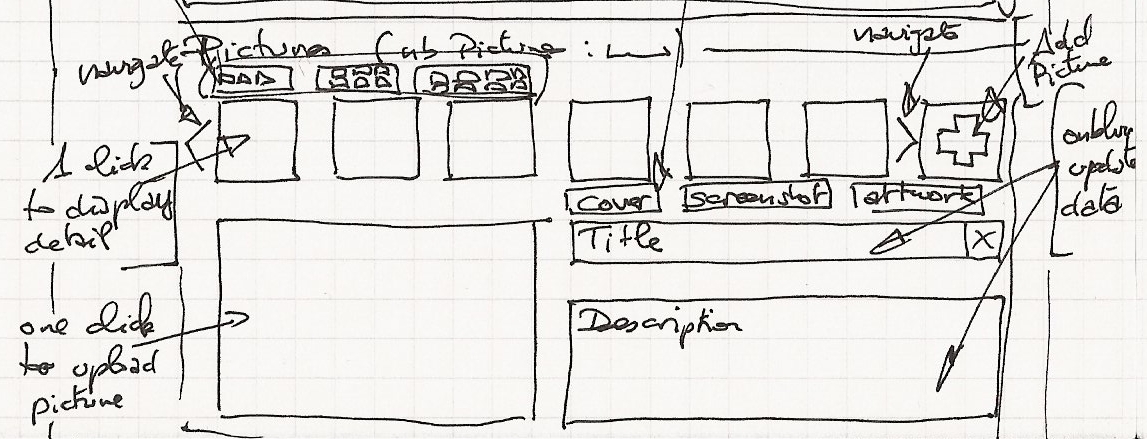 Pictures (nb Picture : )
navigate
navigate
Add
Picture
1 click
to display
detail
onblur
update
data
cover
screenshot
artwork
Title
X
one click
to upload
picture
Description